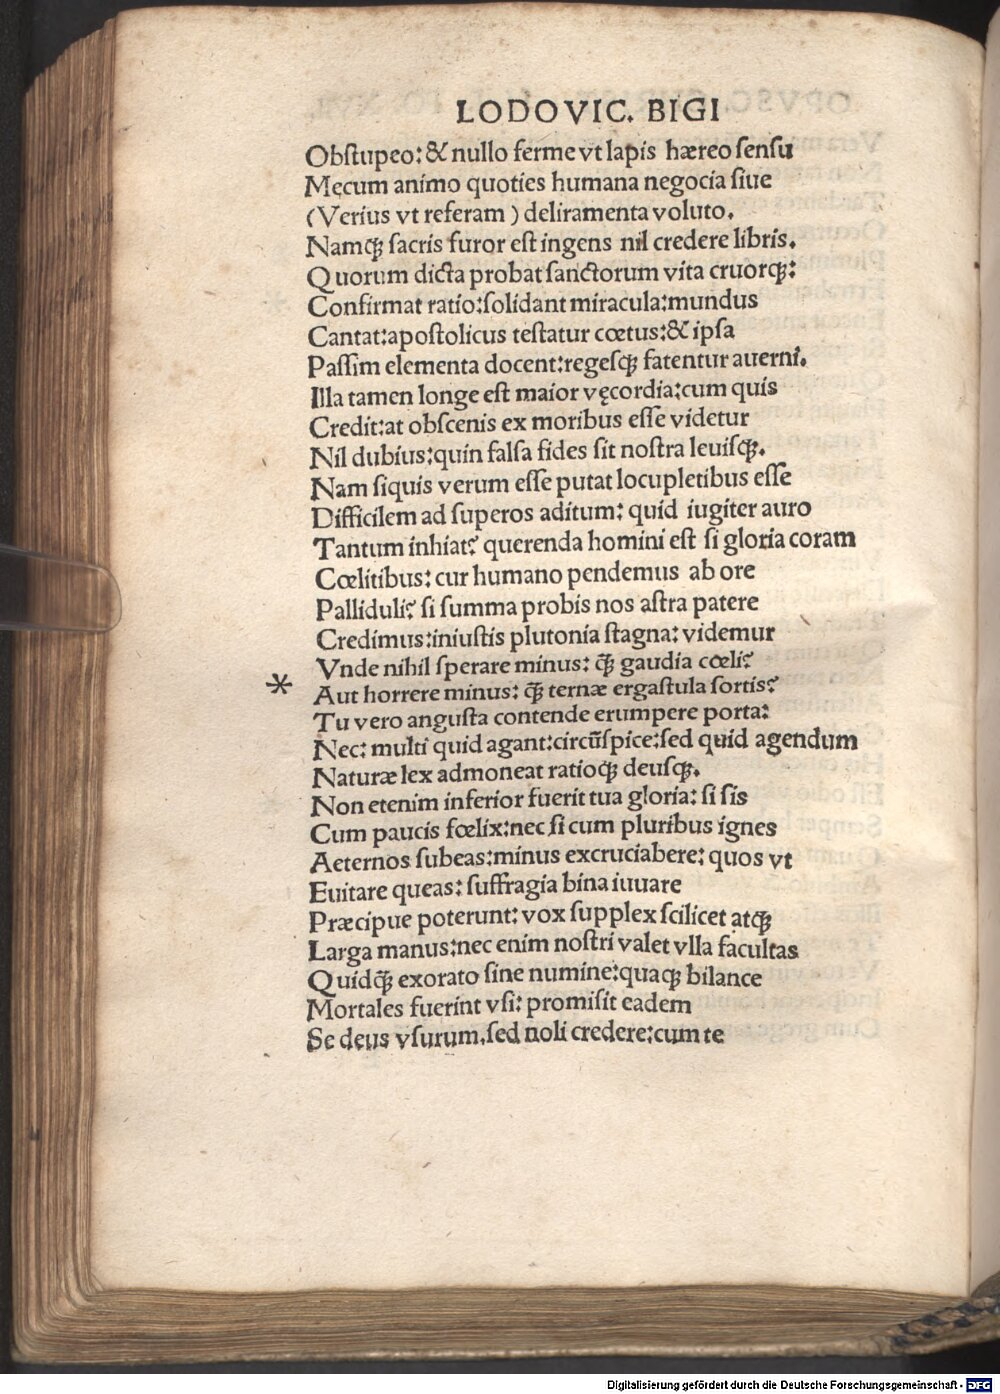 LODOVIC. BIGI
Obſtupeo: & nullo ferme vt lapis hæreo ſenſu
Męcum animo quoties humana negocia ſiue
(Verius vt referam) deliramenta voluto.
Namqꝫ ſacris furor eſt ingens nil credere libris.
Quorum dicta probat ſanctorum vita cruorqꝫ:
Confirmat ratio: ſolidant miracula: mundus
Cantat: apoſtolicus teſtatur cœtus: & ipſa
Paſſim elementa docent: regeſqꝫ fatentur auerni.
Illa tamen longe eſt maior vęcordia: cum quis
Credit: at obſcenis ex moribus eſſe videtur
Nil dubius: quin falſa fides ſit noſtra leuiſqꝫ.
Nam ſiquis verum eſſe putat locupletibus eſſe
Difficilem ad ſuperos aditum: quid iugiter auro
Tantum inhiat? querenda homini eſt ſi gloria coram
Cœlitibus: cur humano pendemus ab ore
Palliduli? ſi ſumma probis nos aſtra patere
Credimus: iniuſtis plutonia ſtagna: videmur
Vnde nihil ſperare minus: qꝫ̃ gaudia cœli?
* Aut horrere minus: qꝫ̃ ternæ ergaſtula ſortis?
Tu vero anguſta contende erumpere porta:
Nec: multi quid agant: circũſpice: ſed quid agendum
Naturæ lex admoneat ratioqꝫ deuſqꝫ.
Non etenim inferior fuerit tua gloria: ſi ſis
Cum paucis fœlix: nec ſi cum pluribus ignes
Aeternos ſubeas: minus excruciabere: quos vt
Euitare queas: ſuffragia bina iuuare
Præcipue poterunt: vox ſupplex ſcilicet atqꝫ
Larga manus: nec enim noſtri valet vlla facultas
Quidqꝫ̃ exorato ſine numine: quaqꝫ bilance
Mortales fuerint vſi: promiſit eadem
Se deus vſurum. ſed noli credere: cum te
Digitalisierung gefördert durch die Deutsche Forschungsgemeinschaft - DFG